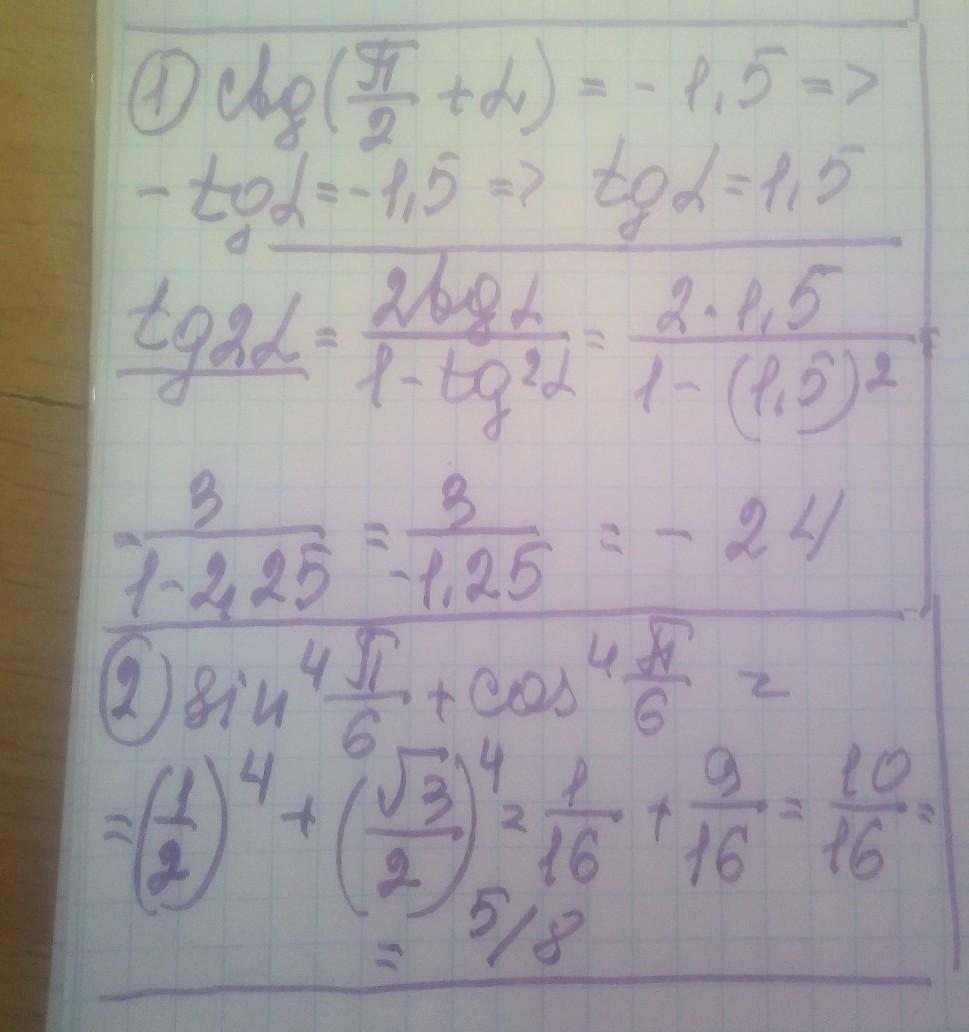 ① ctg(π/2 + α) = - 1,5 =>
- tgα = -1,5 => tgα = 1,5
tg2α = 2tgα / 1 - tg²α = 2·1,5 / 1 - (1,5)² =
= 3 / 1-2,25 = 3 / -1,25 = - 24
② sin⁴ π/6 + cos⁴ π/6 =
= (1/2)⁴ + (√3/2)⁴ = 1/16 + 9/16 = 10/16 =
= 5/8